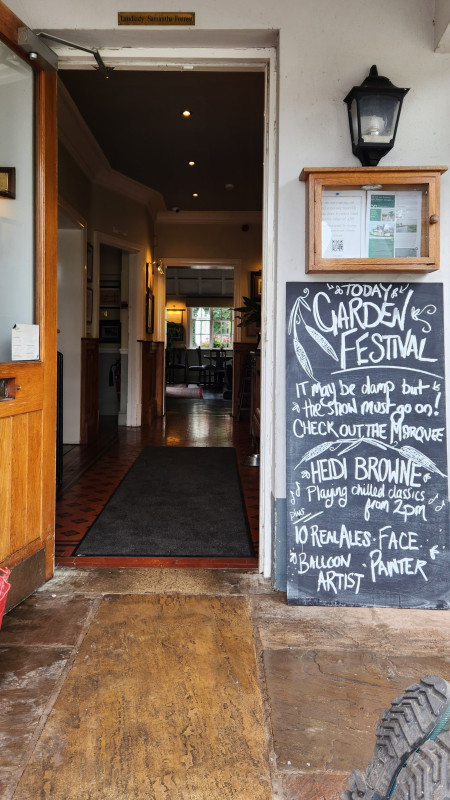 Landlady: Samantha Forrest
TODAY
GARDEN
FESTIVAL
IT MAY BE DAMP but
the SHOW MUST GO ON!
CHECK OUT THE MARQUEE
HEIDI BROWNE
Playing chilled classics
from 2pm
Plus
10 REAL ALES · FACE
BALLOON · PAINTER
ARTIST